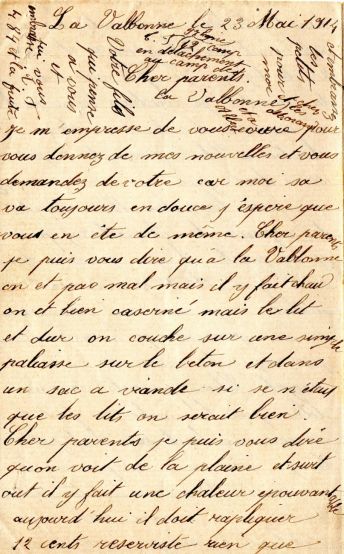 La Valbonne le 23 Mai 1914
en detachement
au camp de
La Valbonne
Votre fils
qui pense
a vous
et
Cher parents.
je m'emprasse de vous écrire pour
vous donnez de mes nouvelles et vous
demandez de votre car moi sa
va toujours en douce j'espere que
vous en ète de mème. Cher parents
je puis vous dire qu'a la Valbonne
on et pas mal mais il y fait chaud
on et bien caserné mais le lit
et dur on couche sur une simple
paliasse sur le beton et dans
un sac a viande si se n'étais
que les lits on serait bien.
Cher parents je puis vous dire
qu'on voit de la plaine et surt
out il y fait une chaleur epouvantable
aujourd'hui il doit rapliquer
12 cents reserviste rien que